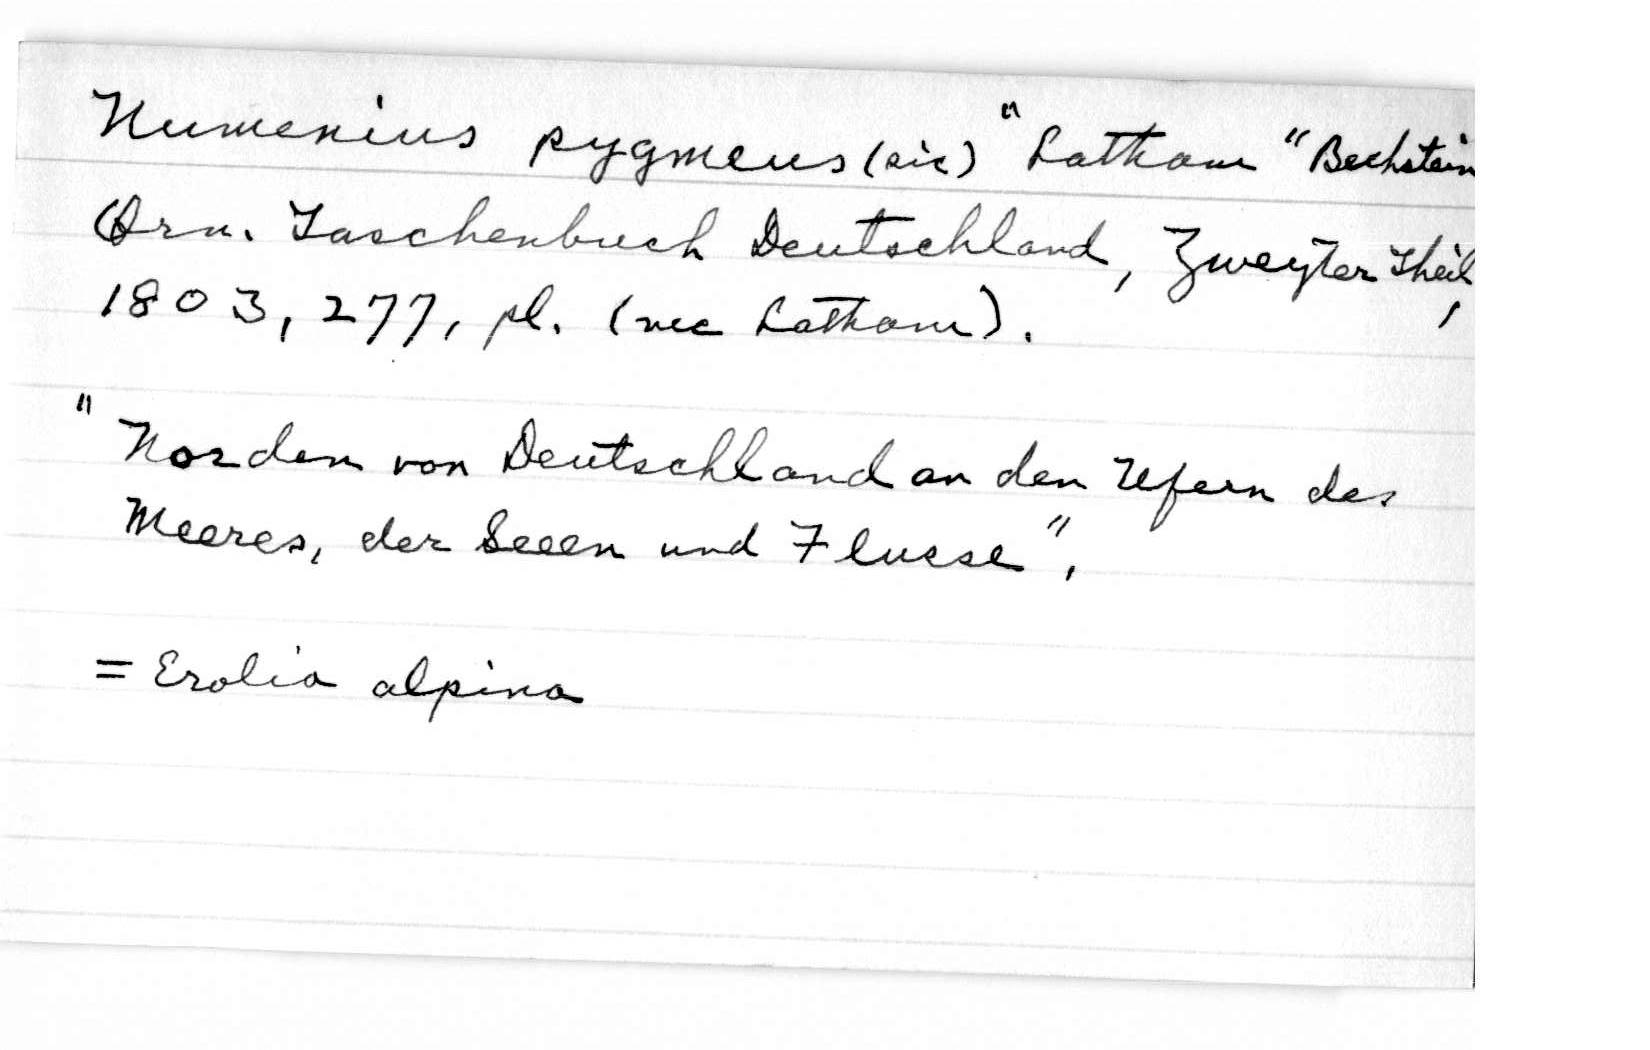 Numenius pygmeus (sic) "Latham" Bechstein
Orn. Taschenbuch Deutschland, Zweyter Theil,
1803, 277, pl. (nec Latham).
"Norden von Deutschland an den Ufern des
Meeres, der Seeen und Flusse",
= Erolia alpina